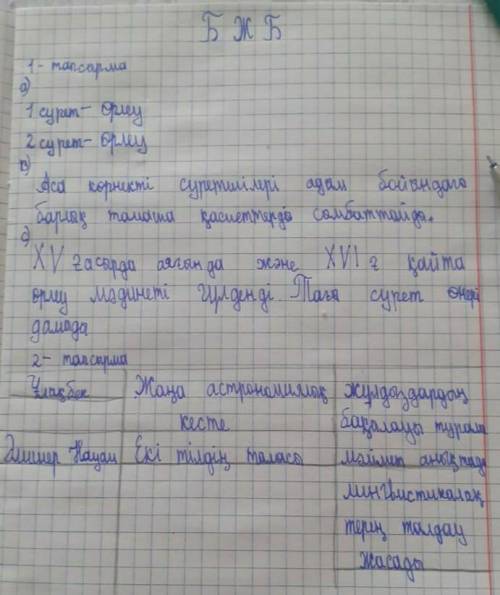 БЖБ
1- тапсырма
а)
1 сурет- Өрлеу
2 сурет- Өрлеу
в)
Аса көрнекті суретшілері адам бойындағы
барлық тамаша қасиеттерді сомбаттайды.
с)
XV ғасырда аяғында және XVI ғ қайта
өрлеу мәдинеті гүлденді. Тағы сурет өнері
дамыды
2- тапсырма
Ұлықбек Жаңа астрономиялық кесте жұлдыздардың бақылауы туралы мәлімет анықтады
Әлишер Науаи Екі тілдің таласы лингвистикалық терең талдау жасады